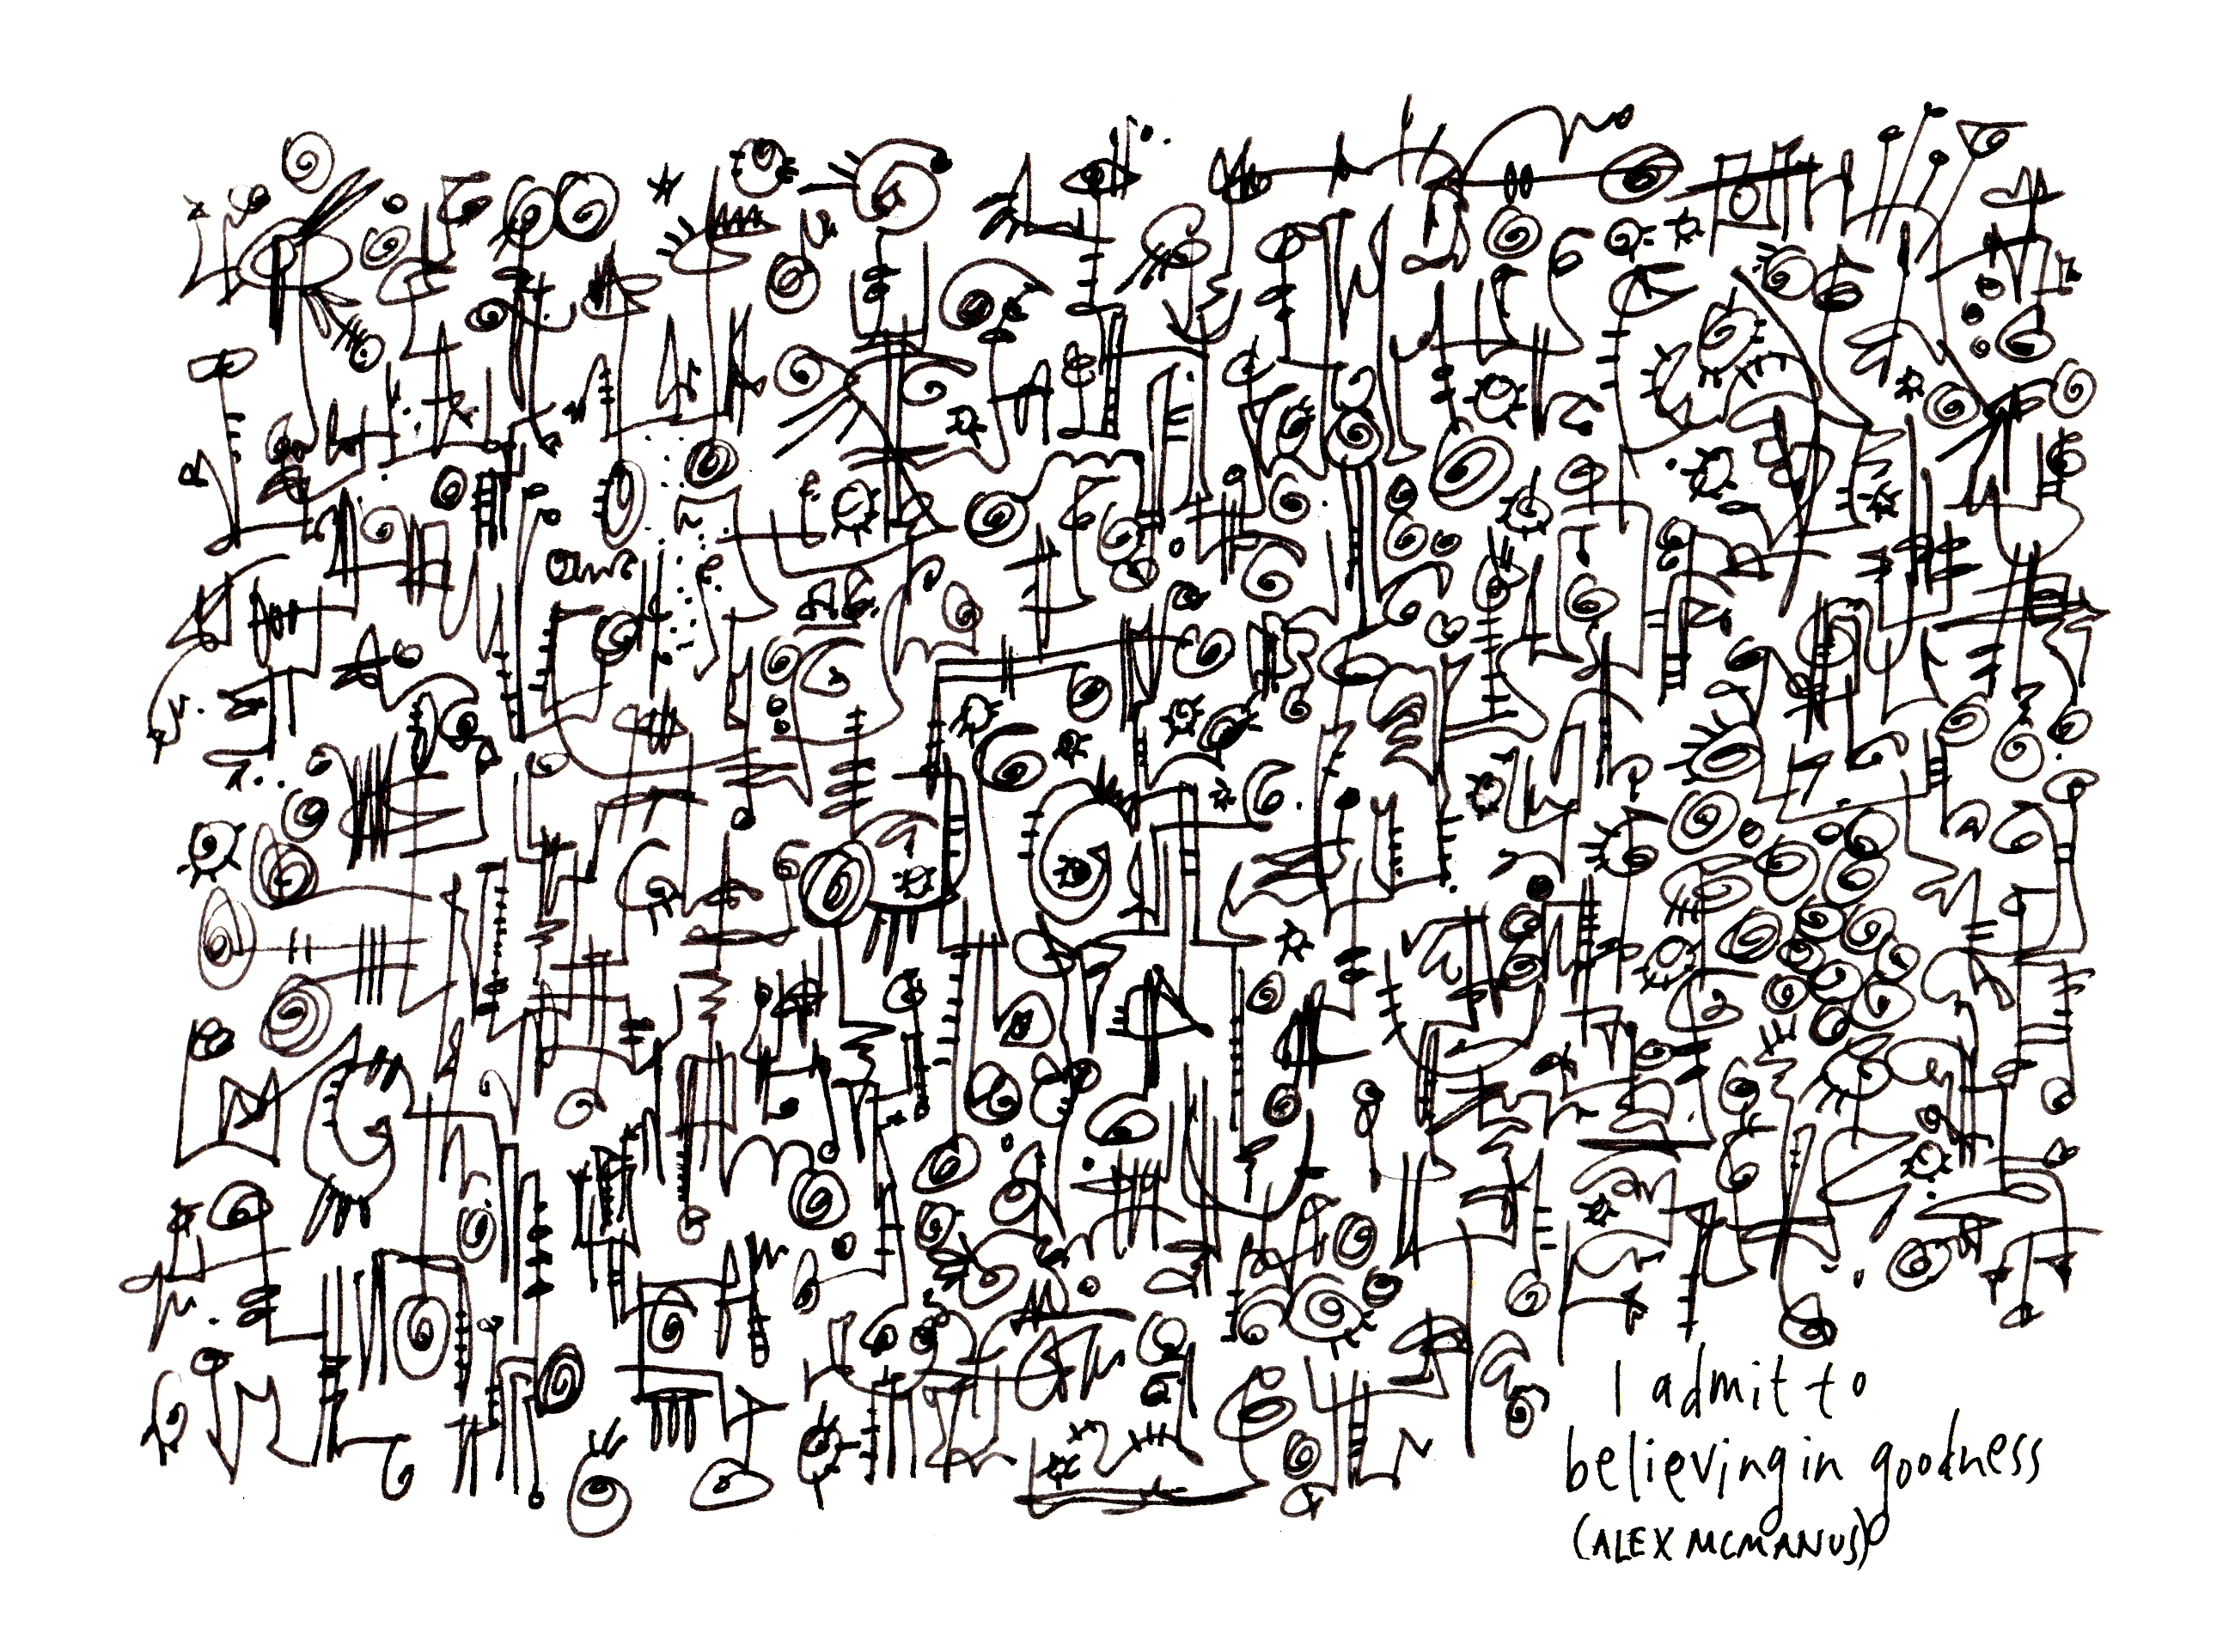 I admit to
believing in goodness
(ALEX MCMANUS)